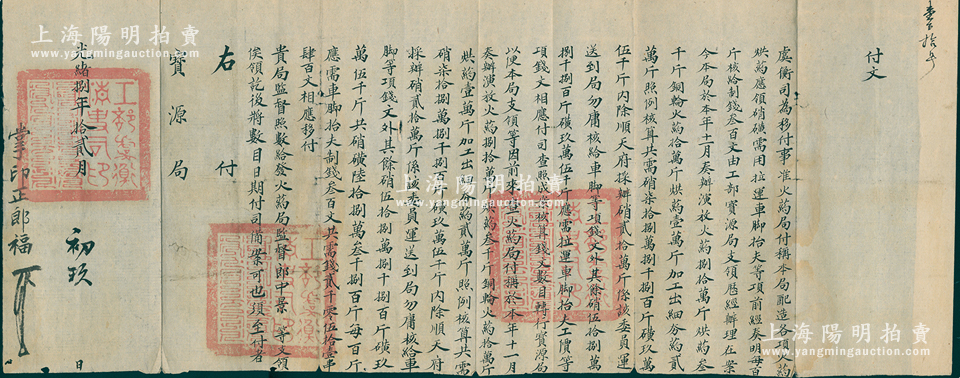 壹拾号
付文
虞衡司為移付事准火药局付稱本局配造各項火药
烘药應領硝磺需用拉運車脚抬夫等項前經奏明每百
斤核給制錢叁百文由工部寳源局支領歷經辦理在案
今本局於本年十一月奏辦演放火药捌拾萬斤烘药叁
千斤銅輪火药拾萬斤烘药壹萬斤加工出細分药貳
萬斤照例核算共需硝柒拾捌萬捌千捌百斤磺玖萬
伍千斤内除順天府採辦硝貳拾萬斤係該委員運
送到局勿庸核給車脚等項錢文外其餘硝伍拾捌萬
捌千捌百斤磺玖萬伍千斤應需拉運車脚抬夫工價等
項錢文相應付司查照成案核算錢文數目轉行寳源局
以便本局支領等因前來查火药局付稱於本年十一月
奏辦演放火药捌拾萬斤烘药叁千斤銅輪火药拾萬斤
烘药壹萬斤加工出細分药貳萬斤照例核算共需
硝柒拾捌萬捌千捌百斤磺玖萬伍千斤内除順天府
採辦硝貳拾萬斤係該委員運送到局勿庸核給車
脚等項錢文外其餘硝伍拾捌萬捌千捌百斤磺玖
萬伍千斤共硝磺陸拾捌萬叁千捌百斤每百斤
應需車脚抬夫制錢叁百文共需錢貳千零伍拾壹串
肆百文相應移付
貴局監督照數給發火药局監督郎中景 等支領
俟領訖後將數目日期付司備案可也須至付者
右付
寳源局
光緒捌年拾貳月 初玖 日
掌印正郎福
工部虞衡清吏司印
上海陽明拍賣
www.yangmingauction.com
上海陽明拍賣
www.yangmingauction.com
上海陽明拍賣
www.yangmingauction.com
上海陽明拍賣
www.yangmingauction.com